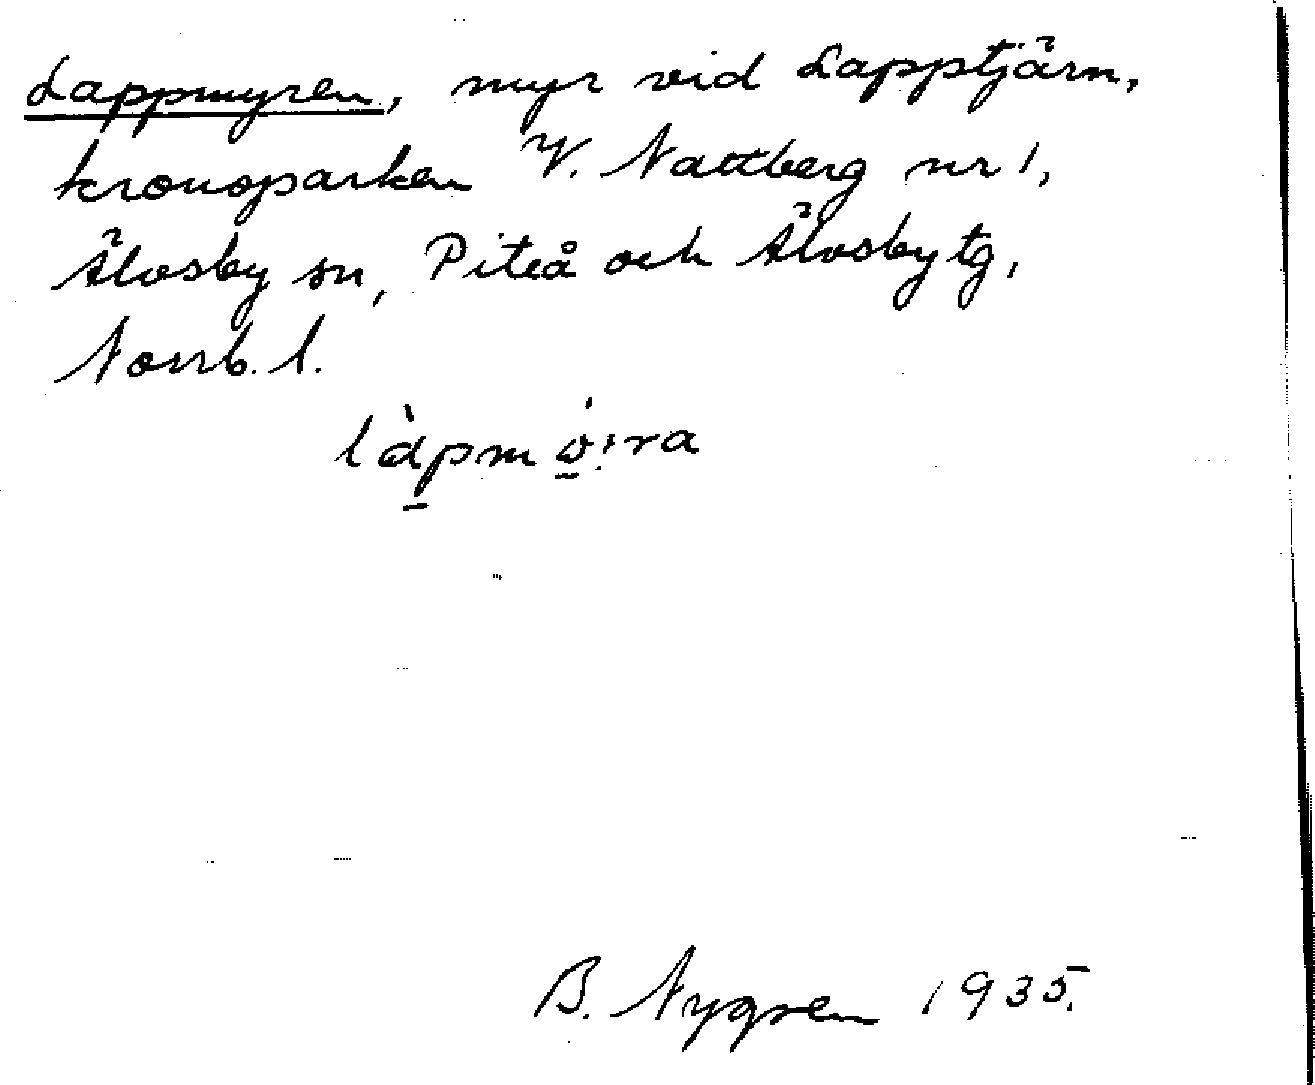 Lappmyren, myr vid Lapptjärn,
kronoparken V. Nattberg nr 1,
Älvsby sn, Piteå och Älvsby tg,
Norrb. l.
B. Nygren 1935.